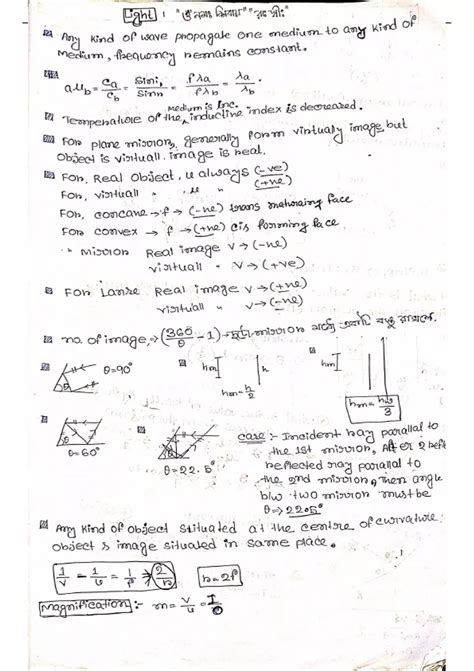 Light :
Any kind of wave propagate one medium to any kind of
medium, frequency remains constant.
aμb = Ca/Cb = Sini/Sinr = fλa/fλb = λa/λb.
medium is Inc.
Temperature of the inductive index is decreased.
For plane mirror, generally form virtualy image but
object is virtuall. image is real.
For, Real Object, u always (-ve)
For, virtuall " " u " (+ve)
For, concane → f → (-ve)
For convex → f → (+ve)
" Mirror Real image v → (-ve)
virtuall " v → (+ve)
For Lanse Real image v → (+ve)
virtuall " v → (-ve)
no. of image, → (360/θ - 1) →
θ=90°
hm
h
hm = h/2
hm
θ=60°
θ=22.5°
case :- Incident ray parallal to
the 1st mirror, After 2
reflected ray parallal to
the 2nd mirror, then angle
b/w two mirror must be
θ → 22.5°
Any kind of object situated at the centre of curvature.
object s image situated in same place.
1/v - 1/u = 1/f → 2/r
r = 2f
Magnification :- m = v/u = I/O